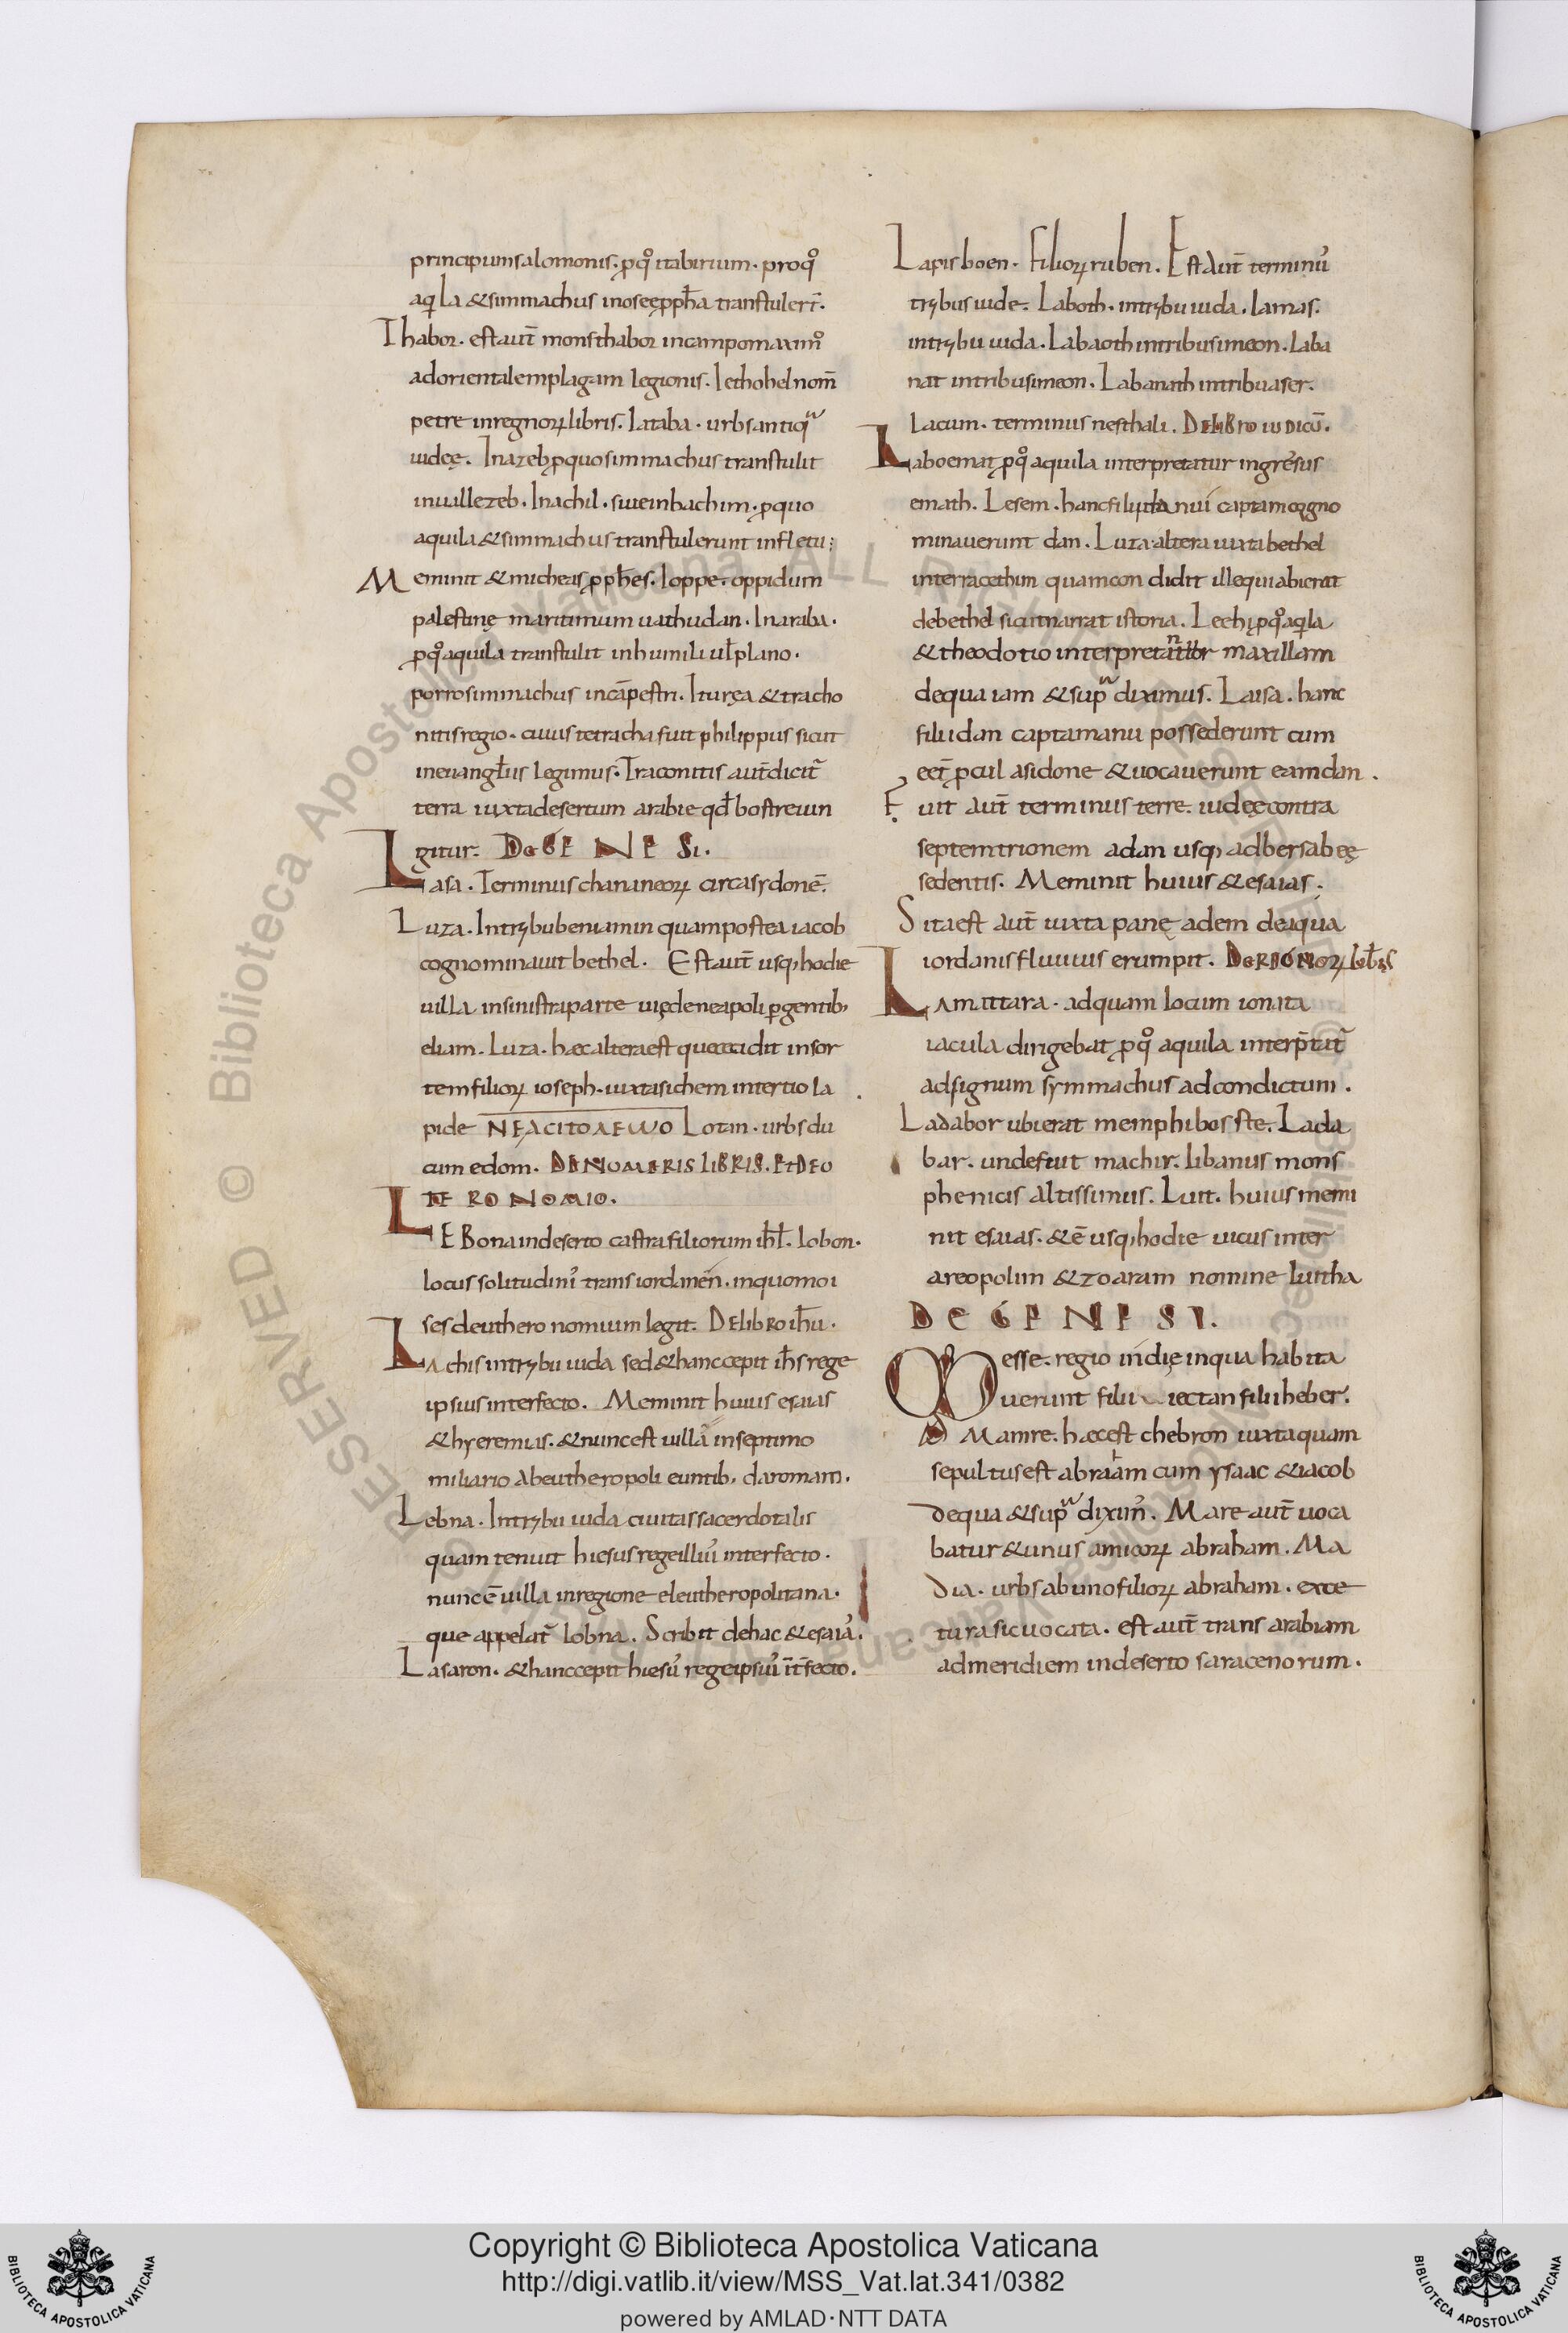 principum salomonis. ꝓ qͦ itabirium. pro qͦ
aqͥla & simmachus in oseę ꝓpħa transtuler̄t.
Thabor. est aut̄ mons thabor in campo maximͦ
ad orientalem plagam legionis. Iethohel nom̄
petre in regnoꝝ libris. Iataba. urbs antiqͣ
iudeę. Inazeb ꝓ quo simmachus transtulit
in uallezeb. Inachil. siue inbachim. ꝓ quo
aquila & simmachus transtulerunt in fletu;
Meminit & micheas ꝓpħes. Ioppe. oppidum
palestinę maritimum uathudan. Inaraba.
ꝓ qͦ aquila transtulit in humili ul̄ plano.
porro simmachus in cāpestri. Ituręa & tracho
nitis regio. cuius tetracha fuit philippus sicut
in euangl̄iis legimus. Traconitis aut̄ dicit̄
terra iuxta desertum arabie qd̄ bostre iun
gitur. DE GENESI.
Lasa. Terminus chananeoꝝ circa sydonē.
Luza. In trybu beniamin quam postea iacob
cognominauit bethel. Est aut̄ usq; hodie
uilla in sinistra parte uię de neapoli ꝑgentib;
eliam. Luza. hæc altera est que cecidit in sor
tem filioꝝ ioseph. iuxta sichem in tertio la
pide NEACITOΛEWO Lotan. urbs du
cum edom. DE NOMERIS LIBRIS. ET DEO
TERONOMIO.
LEBona in deserto castra filiorum iħl. Lobon.
locus solitudinis trans iordanen. in quo moi
ses deuthero nomium legit. DE libRO iħu.
LAchis in trybu iuda sed & hanc cepit iħs rege
ipsius interfecto. Meminit huius esaias
& hyeremias. & nunc est uilla in septimo
miliario ab eutheropoli euntib; daromam.
Lebna. In trybu iuda ciuitas sacerdotalis
quam tenuit hiesus rege illiu᾽ interfecto.
nunc ē uilla in regione eleutheropolitana.
que appelat̄ lobna. Scribit de hac & esaia᾽.
Lasaron. & hanc cepit hiesu᾽ rege ipsiu᾽ īt̄fecto.
Lapis boen. Filioꝝ ruben. Est aut̄ terminu᾽
trybus iude. Laboth. in trybu iuda. Lamas.
in trybu iuda. Labaoth in tribu simeon. Laba
nat in tribu simeon. Labanath in tribu aser.
Lacum. terminus nesthali. DE LIBRO IUDICŪ.
Laboemat ꝓ qͦ aquila interpretatur ingresus
emath. Lesem. hanc filii dan ui captam cogno
minauerunt dan. Luza. altera iuxta bethel
in terra cethim quam condidit ille qui abierat
de bethel sicut narrat istoria. Lechi ꝓ qͦ aqͥla
& theodotio interpretantur maxillam
de qua iam & supͣ diximus. Laisa. hanc
filii dan capta manu possederunt cum
eēt ꝓcul a sidone & uocauerunt eam dan.
Fuit aut̄ terminus terre iudeę contra
septemtrionem a dan usq; ad bersabeę
sedentis. Meminit huius & esaias.
Sita est aut̄ iuxta paneadem de aqua
iordanis fluuius erumpit. DE REGNOꝝ lib̄is
LAmattara. ad quam locum ionata
iacula dirigebat ꝓ qͦ aquila interp̄tat̄
ad signum symmachus ad condictum.
Ladabor ubi erat memphibosste. Lada
bar. unde fuit machir. libanus mons
phenicis altissimus. Luit. huius memi
nit esaias. & ē usq; hodie uicus inter
areopolim & zoaram nomine luitha
DE GENESI.
Messe. regio indię in qua habita
uerunt filii iectan filii heber.
Mamre. hæc est chebron iuxta quam
sepultus est abraham cum ysaac & iacob
de qua & supͣ dixim᾽. Mare aut̄ uoca
batur & unus amicoꝝ abraham. Ma
dia. urbs ab uno filioꝝ abraham. exce
tura sic uocata. est aut̄ trans arabiam
ad meridiem in deserto saracenorum.
Copyright © Biblioteca Apostolica Vaticana
http://digi.vatlib.it/view/MSS_Vat.lat.341/0382
powered by AMLAD·NTT DATA